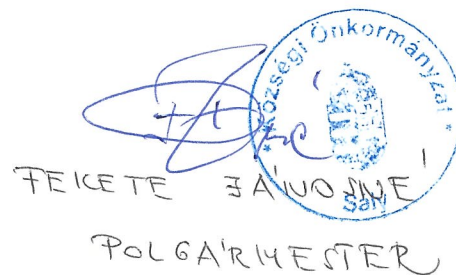 * Községi Önkormányzat *
Sály
FEKETE JÁNOSNÉ
POLGÁRMESTER